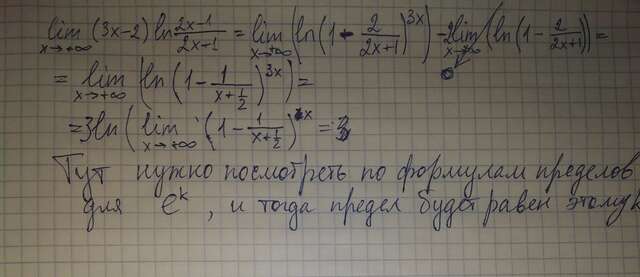 lim x→+∞ (3x-2) ln (2x-1)/(2x-1) = lim x→+∞ (ln(1 - 2/(2x+1))^3x) - 2 lim x→+∞ (ln(1 - 2/(2x+1))) =
0
= lim x→+∞ (ln(1 - 1/(x+1/2))^3x) =
= 3ln(lim x→+∞ (1 - 1/(x+1/2))^x = 3
Тут нужно посмотреть по формулам пределов
для e^k, и тогда предел будет равен этому k